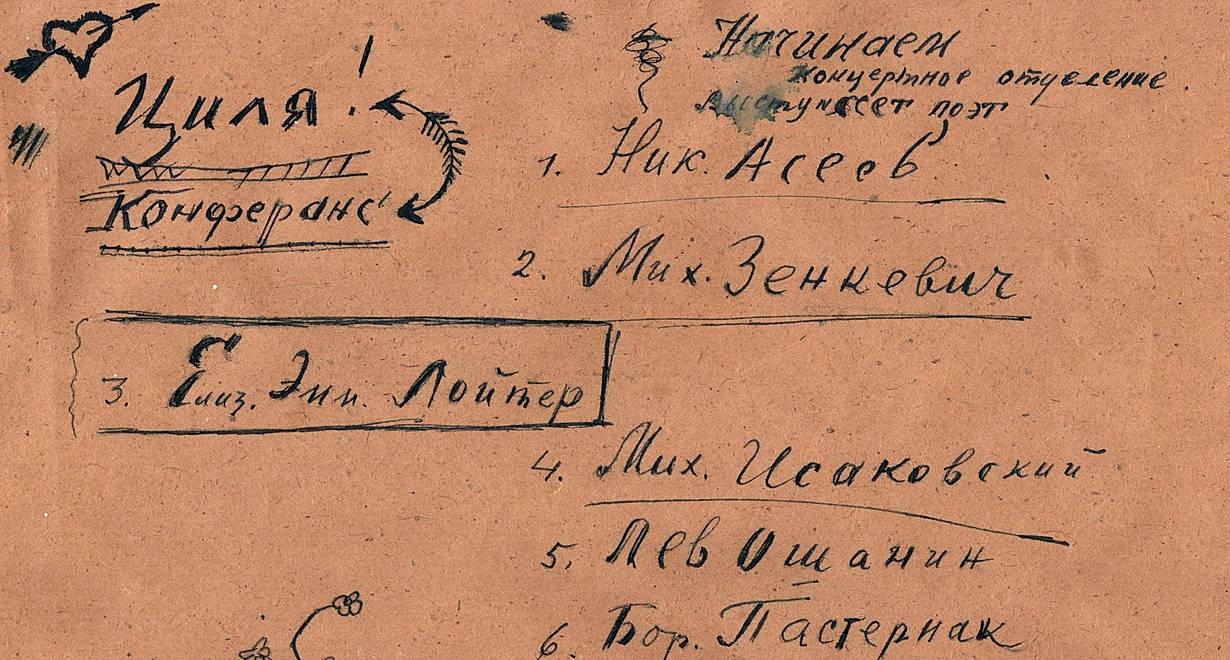 Циля!
Конферанс
Начинаем
концертное отделение.
Выступает поэт
1. Ник. Асеев
2. Мих. Зенкевич
3. Елиз. Эпп. Лойтер
4. Мих. Исаковский
5. Лев Ошанин
6. Бор. Пастернак